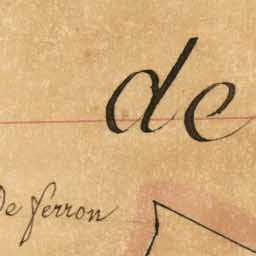 de
De ferron